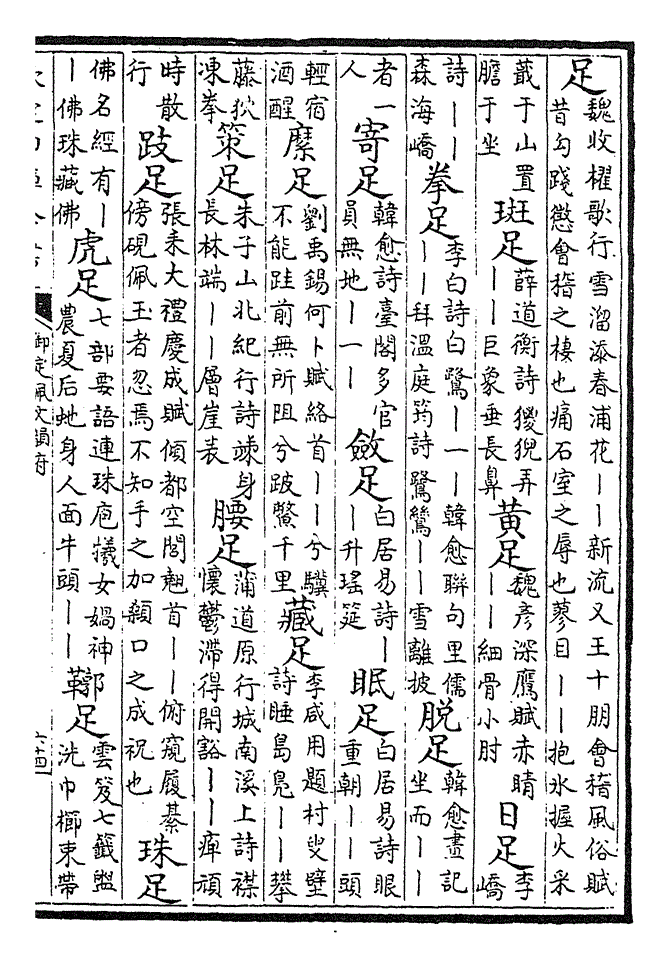 足魏收櫂歌行雪溜添春浦花丨丨新流又王十朋會稽風俗賦昔勾踐懲會稽之棲也痛石室之辱也蓼目丨丨抱氷握火采
蕺于山置膽于坐斑足薛道衡詩獶猊弄丨丨巨象垂長鼻黄足魏彦深鷹賦赤睛丨丨細骨小肘日足李嶠
詩丨丨森海嶠拳足李白詩白鷺丨一丨韓愈聯句里儒丨丨拜溫庭筠詩鷺鷥丨丨雪離披脱足韓愈畫記坐而丨丨
者一人寄足韓愈詩臺閣多官員無地丨一丨斂足白居易詩丨丨升瑶筵眠足白居易詩眼重朝丨丨頭
輕宿酒醒縻足劉禹錫何卜賦絡首丨丨兮驥不能跬前無所阻兮跛鱉千里藏足李咸用題村叟壁詩睡島鳧丨丨攀
藤狖凍拳策足朱子山北紀行詩竦身長林端丨丨層崖表腰足蒲道原行城南溪上詩襟懷鬱滯得開豁丨丨痺頑
時散行跂足張耒大禮慶成賦傾都空閭翹首丨丨俯窺履綦傍硯佩玉者忽焉不知手之加顙口之成祝也珠足
佛名經有丨丨佛珠藏佛虎足七部要語連珠庖犧女媧神農夏后虵身人面牛頭丨丨鞹足雲笈七籤盥洗巾櫛束帶
御定佩文韻府